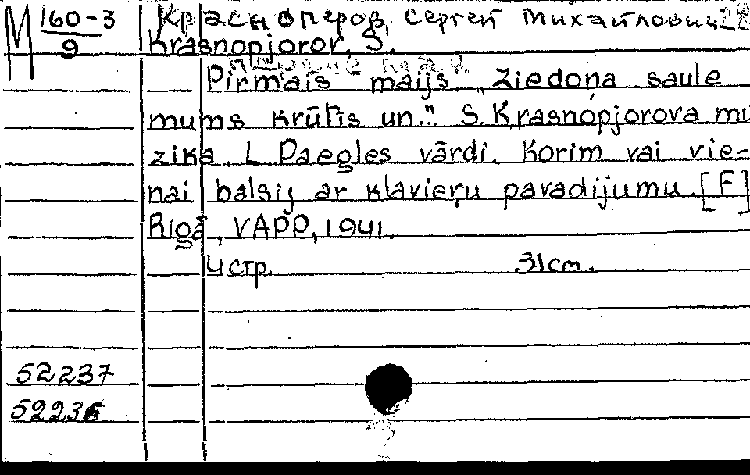 М 160-3
9
Красноперов, Сергей Михайлович
Krasnopjorov, S.
Pirmais maijs „Ziedoņa saule
mums krūtīs un." S. Krasnopjorova mu
zika, L. Paegles vārdi. Korim vai vie-
nai balsij ar klavieŗu pavadijumu. [F]
Rīgā, VAPP, 1941.
4 стр. 31cm.
52237
52236